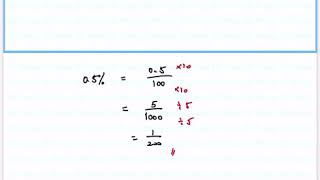 0.5% = 0.5/100 ×10 ×10
= 5/1000 ÷5 ÷5
= 1/200 //